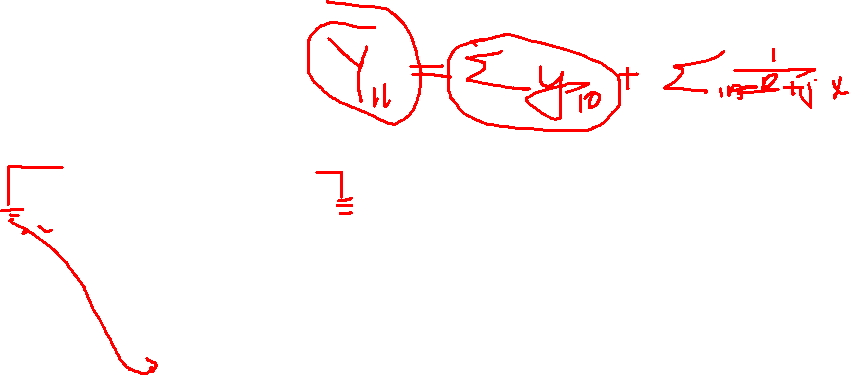 Y11 = Σ y10 + Σ 1 / R + j x